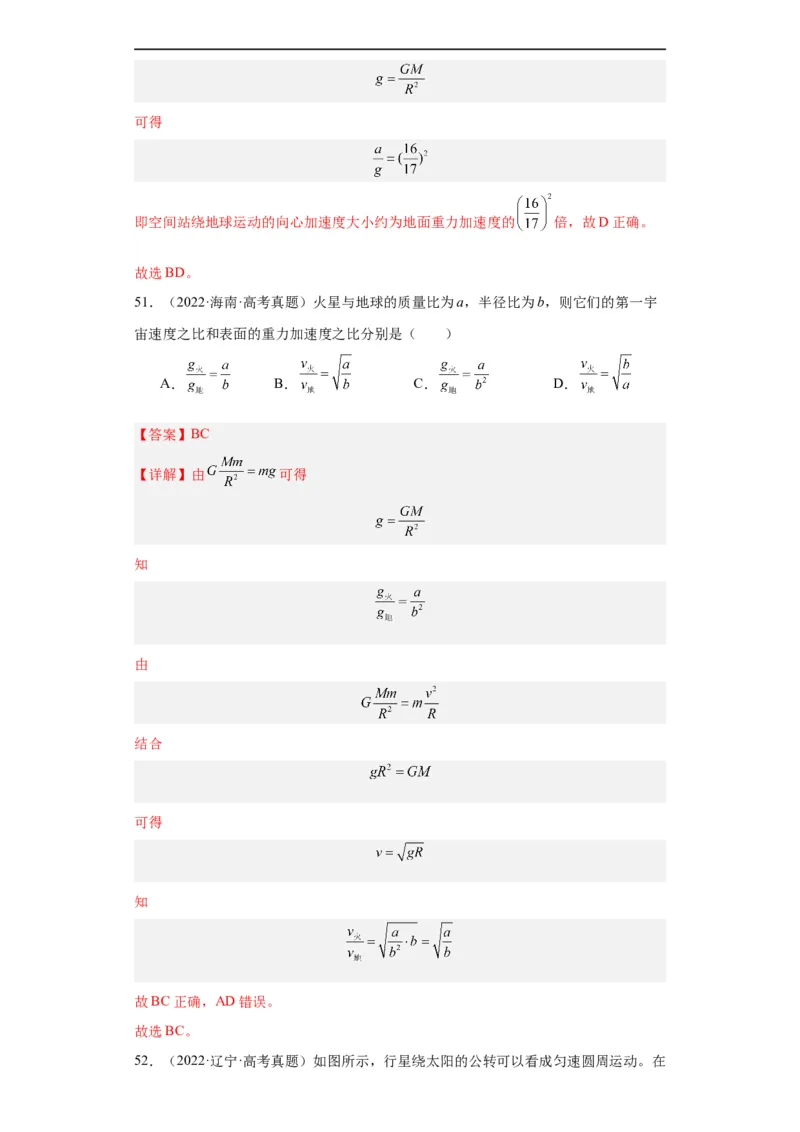 g = GM/R²
可得
a/g = (16/17)²
即空间站绕地球运动的向心加速度大小约为地面重力加速度的(16/17)²倍，故D正确。
故选BD。
51．（2022·海南·高考真题）火星与地球的质量比为a，半径比为b，则它们的第一宇
宙速度之比和表面的重力加速度之比分别是（　　）
A．g火/g地 = a/b　B．v火/v地 = √(a/b)　C．g火/g地 = a/b²　D．v火/v地 = √(b/a)
【答案】BC
【详解】由G Mm/R² = mg可得
g = GM/R²
知
g火/g地 = a/b²
由
G Mm/R² = m v²/R
结合
gR² = GM
可得
v = √gR
知
v火/v地 = √(a/b²·b) = √(a/b)
故BC正确，AD错误。
故选BC。
52．（2022·辽宁·高考真题）如图所示，行星绕太阳的公转可以看成匀速圆周运动。在